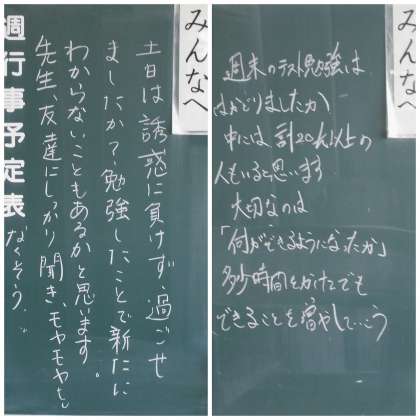 みんなへ
土日は誘惑に負けず過ごせ
ましたか？勉強したことで新たに
わからないこともあるかと思います。
先生、友達にしっかり聞き、モヤモヤを
なくそう。
週行事予定表
みんなへ
週末のテスト勉強は
はかどりましたか
中には計20h以上の
人もいると思います
大切なのは
「何ができるようになったか」
多少時間をかけてでも
できることを増やしていこう